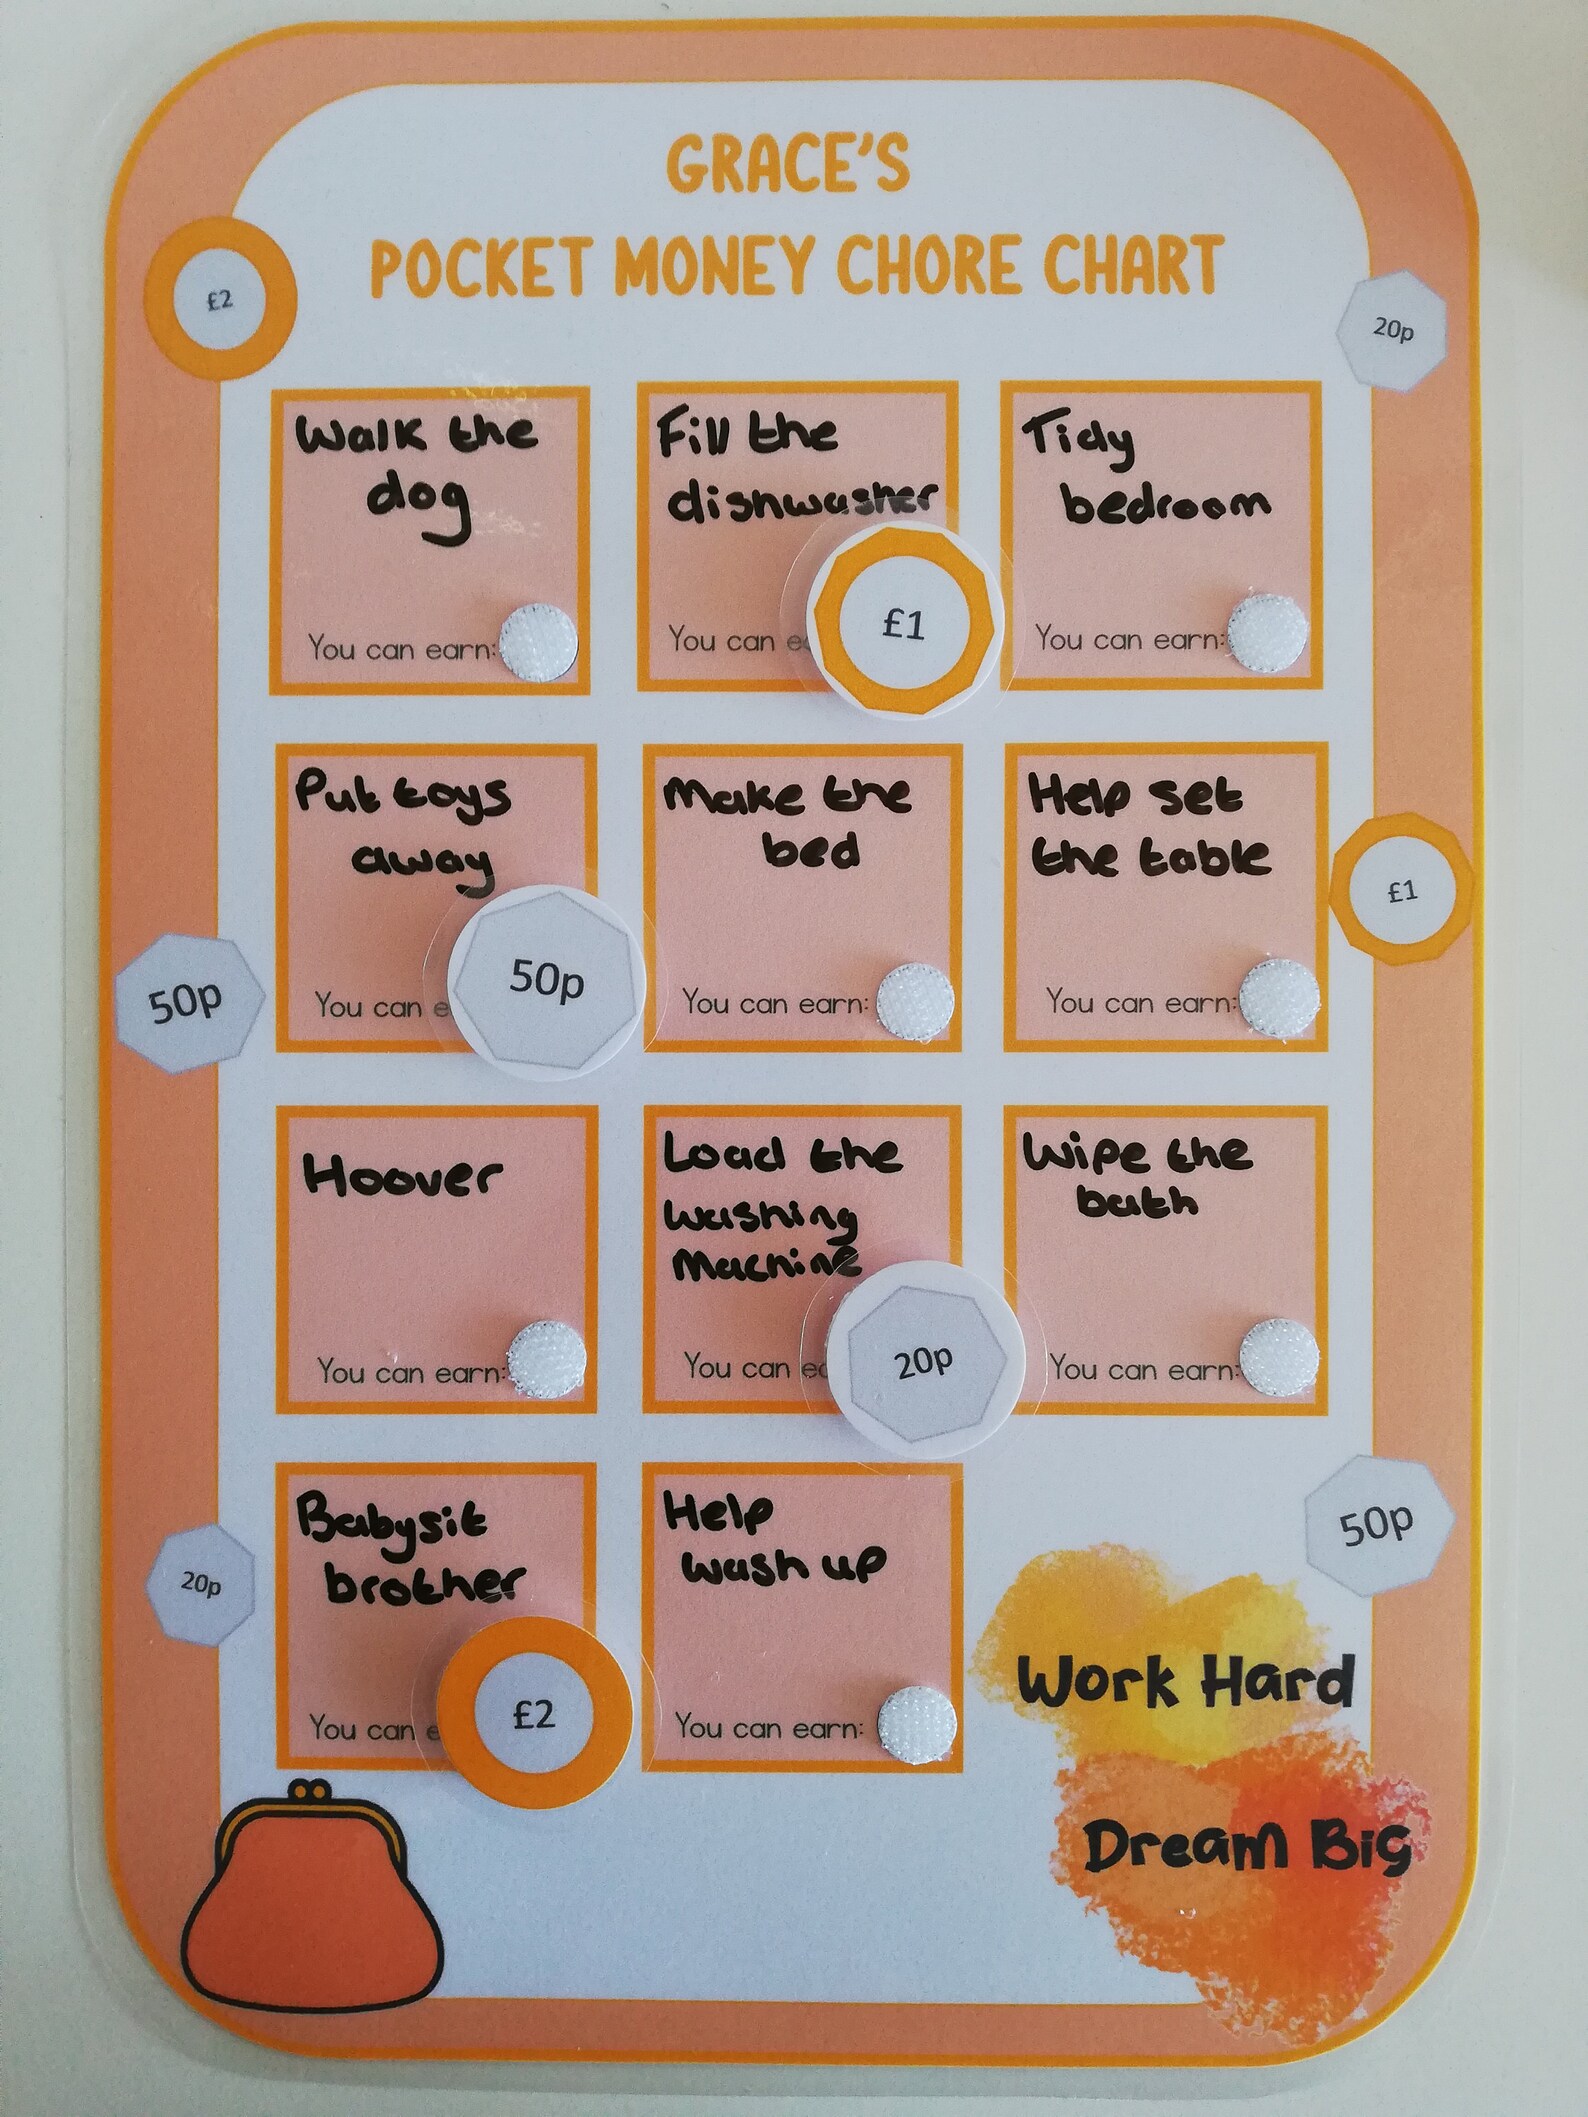 GRACE'S
POCKET MONEY CHORE CHART
£2
20p
Walk the
dog
You can earn:
Fill the
dishwasher
You can
£1
Tidy
bedroom
You can earn:
Put toys
away
You can
50p
Make the
bed
You can earn:
Help set
the table
You can earn:
£1
50p
Hoover
You can earn:
Load the
washing
Machine
You can
20p
Wipe the
bath
You can earn:
Babysit
brother
You can
£2
Help
wash up
You can earn:
50p
20p
Work Hard
Dream Big